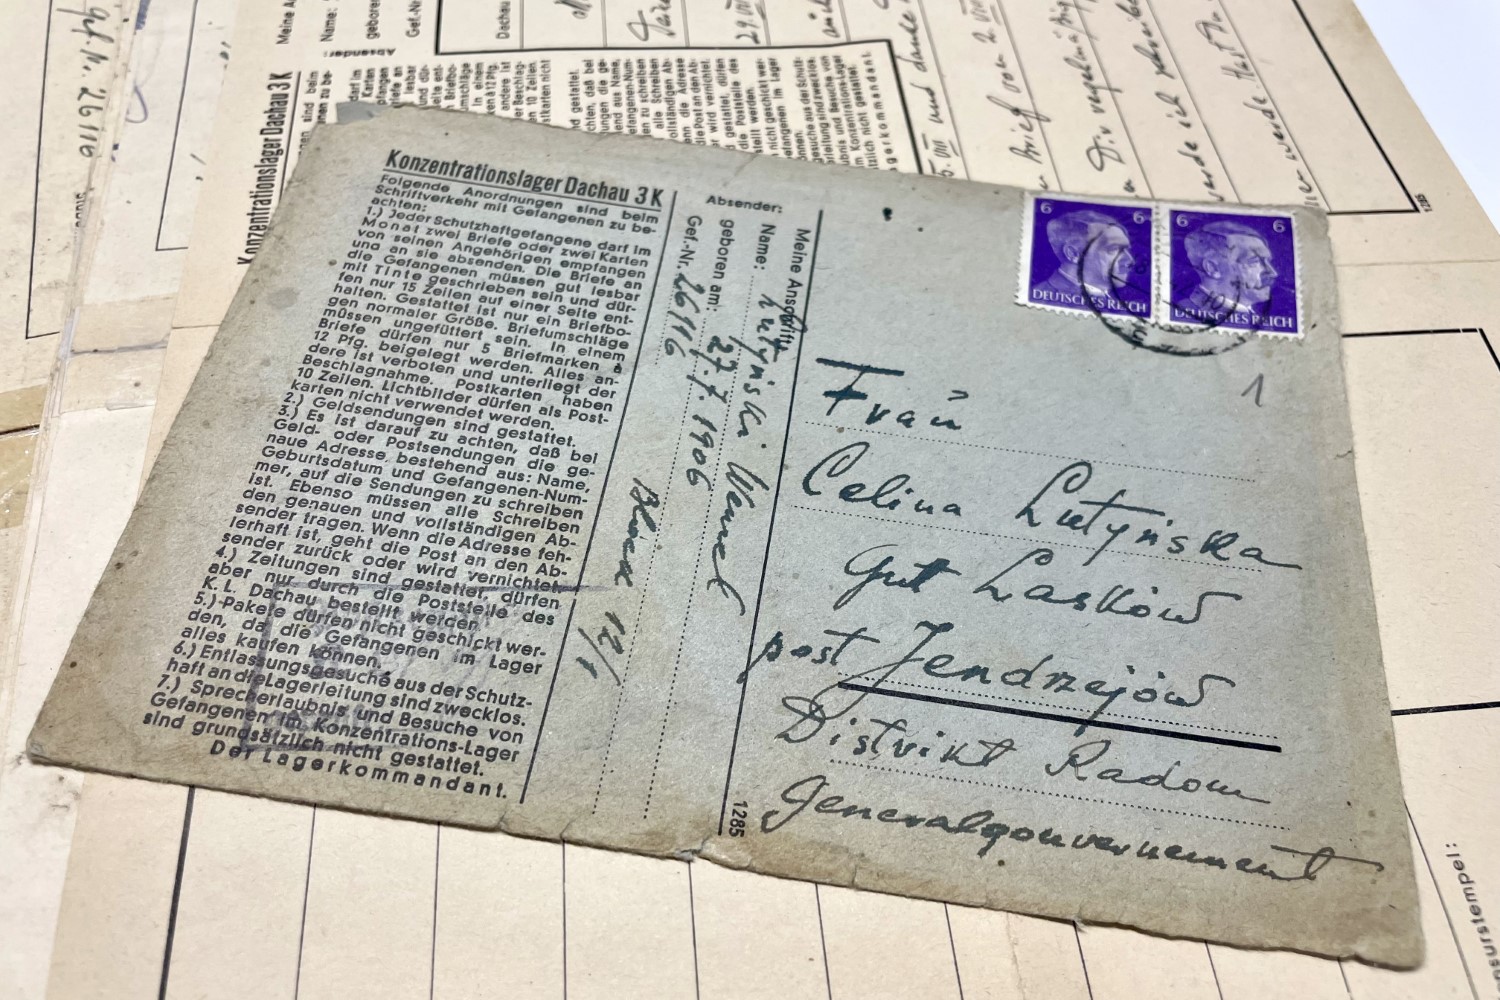 Konzentrationslager Dachau 3 K
Folgende Anordnungen sind beim
Schriftverkehr mit Gefangenen zu be-
achten:
1.) Jeder Schutzhaftgefangene darf im
Monat zwei Briefe oder zwei Karten
von seinen Angehörigen empfangen
und an sie absenden. Die Briefe an
die Gefangenen müssen gut lesbar
mit Tinte geschrieben sein und dür-
fen nur 15 Zeilen auf einer Seite ent-
halten. Gestattet ist nur ein Briefbo-
gen normaler Größe. Briefumschläge
müssen ungefüttert sein. In einem
Briefe dürfen nur 5 Briefmarken à
12 Pfg. beigelegt werden. Alles an-
dere ist verboten und unterliegt der
Beschlagnahme. Postkarten haben
10 Zeilen. Lichtbilder dürfen als Post-
karten nicht verwendet werden.
2.) Geldsendungen sind gestattet.
3.) Es ist darauf zu achten, daß bei
Geld- oder Postsendungen die ge-
naue Adresse, bestehend aus: Name,
Geburtsdatum und Gefangenen-Num-
mer, auf die Sendungen zu schreiben
ist. Ebenso müssen alle Schreiben
den genauen und vollständigen Ab-
sender tragen. Wenn die Adresse feh-
lerhaft ist, geht die Post an den Ab-
sender zurück oder wird vernichtet.
4.) Zeitungen sind gestattet, dürfen
aber nur durch die Poststelle des
K. L. Dachau bestellt werden.
5.) Pakete dürfen nicht geschickt wer-
den, da die Gefangenen im Lager
alles kaufen können.
6.) Entlassungsgesuche aus der Schutz-
haft an die Lagerleitung sind zwecklos.
7.) Sprecherlaubnis und Besuche von
Gefangenen im Konzentrations-Lager
sind grundsätzlich nicht gestattet.
Der Lagerkommandant.
Absender:
Meine Anschrift:
Name: Lutyński
geboren am: 27.7.1906
Gef.-Nr. 26116
12/1
1285
6 6
DEUTSCHES REICH
6 6
DEUTSCHES REICH
1
Frau
Celina Lutyńska
Gut Lasków
post Jendrzejów
Distrikt Radom
Generalgouvernement
Gef. N. 26116
Konzentrationslager Dachau 3 K
Absender:
Meine
Name:
geboren
Gef.-Nr.
Dachau
1285